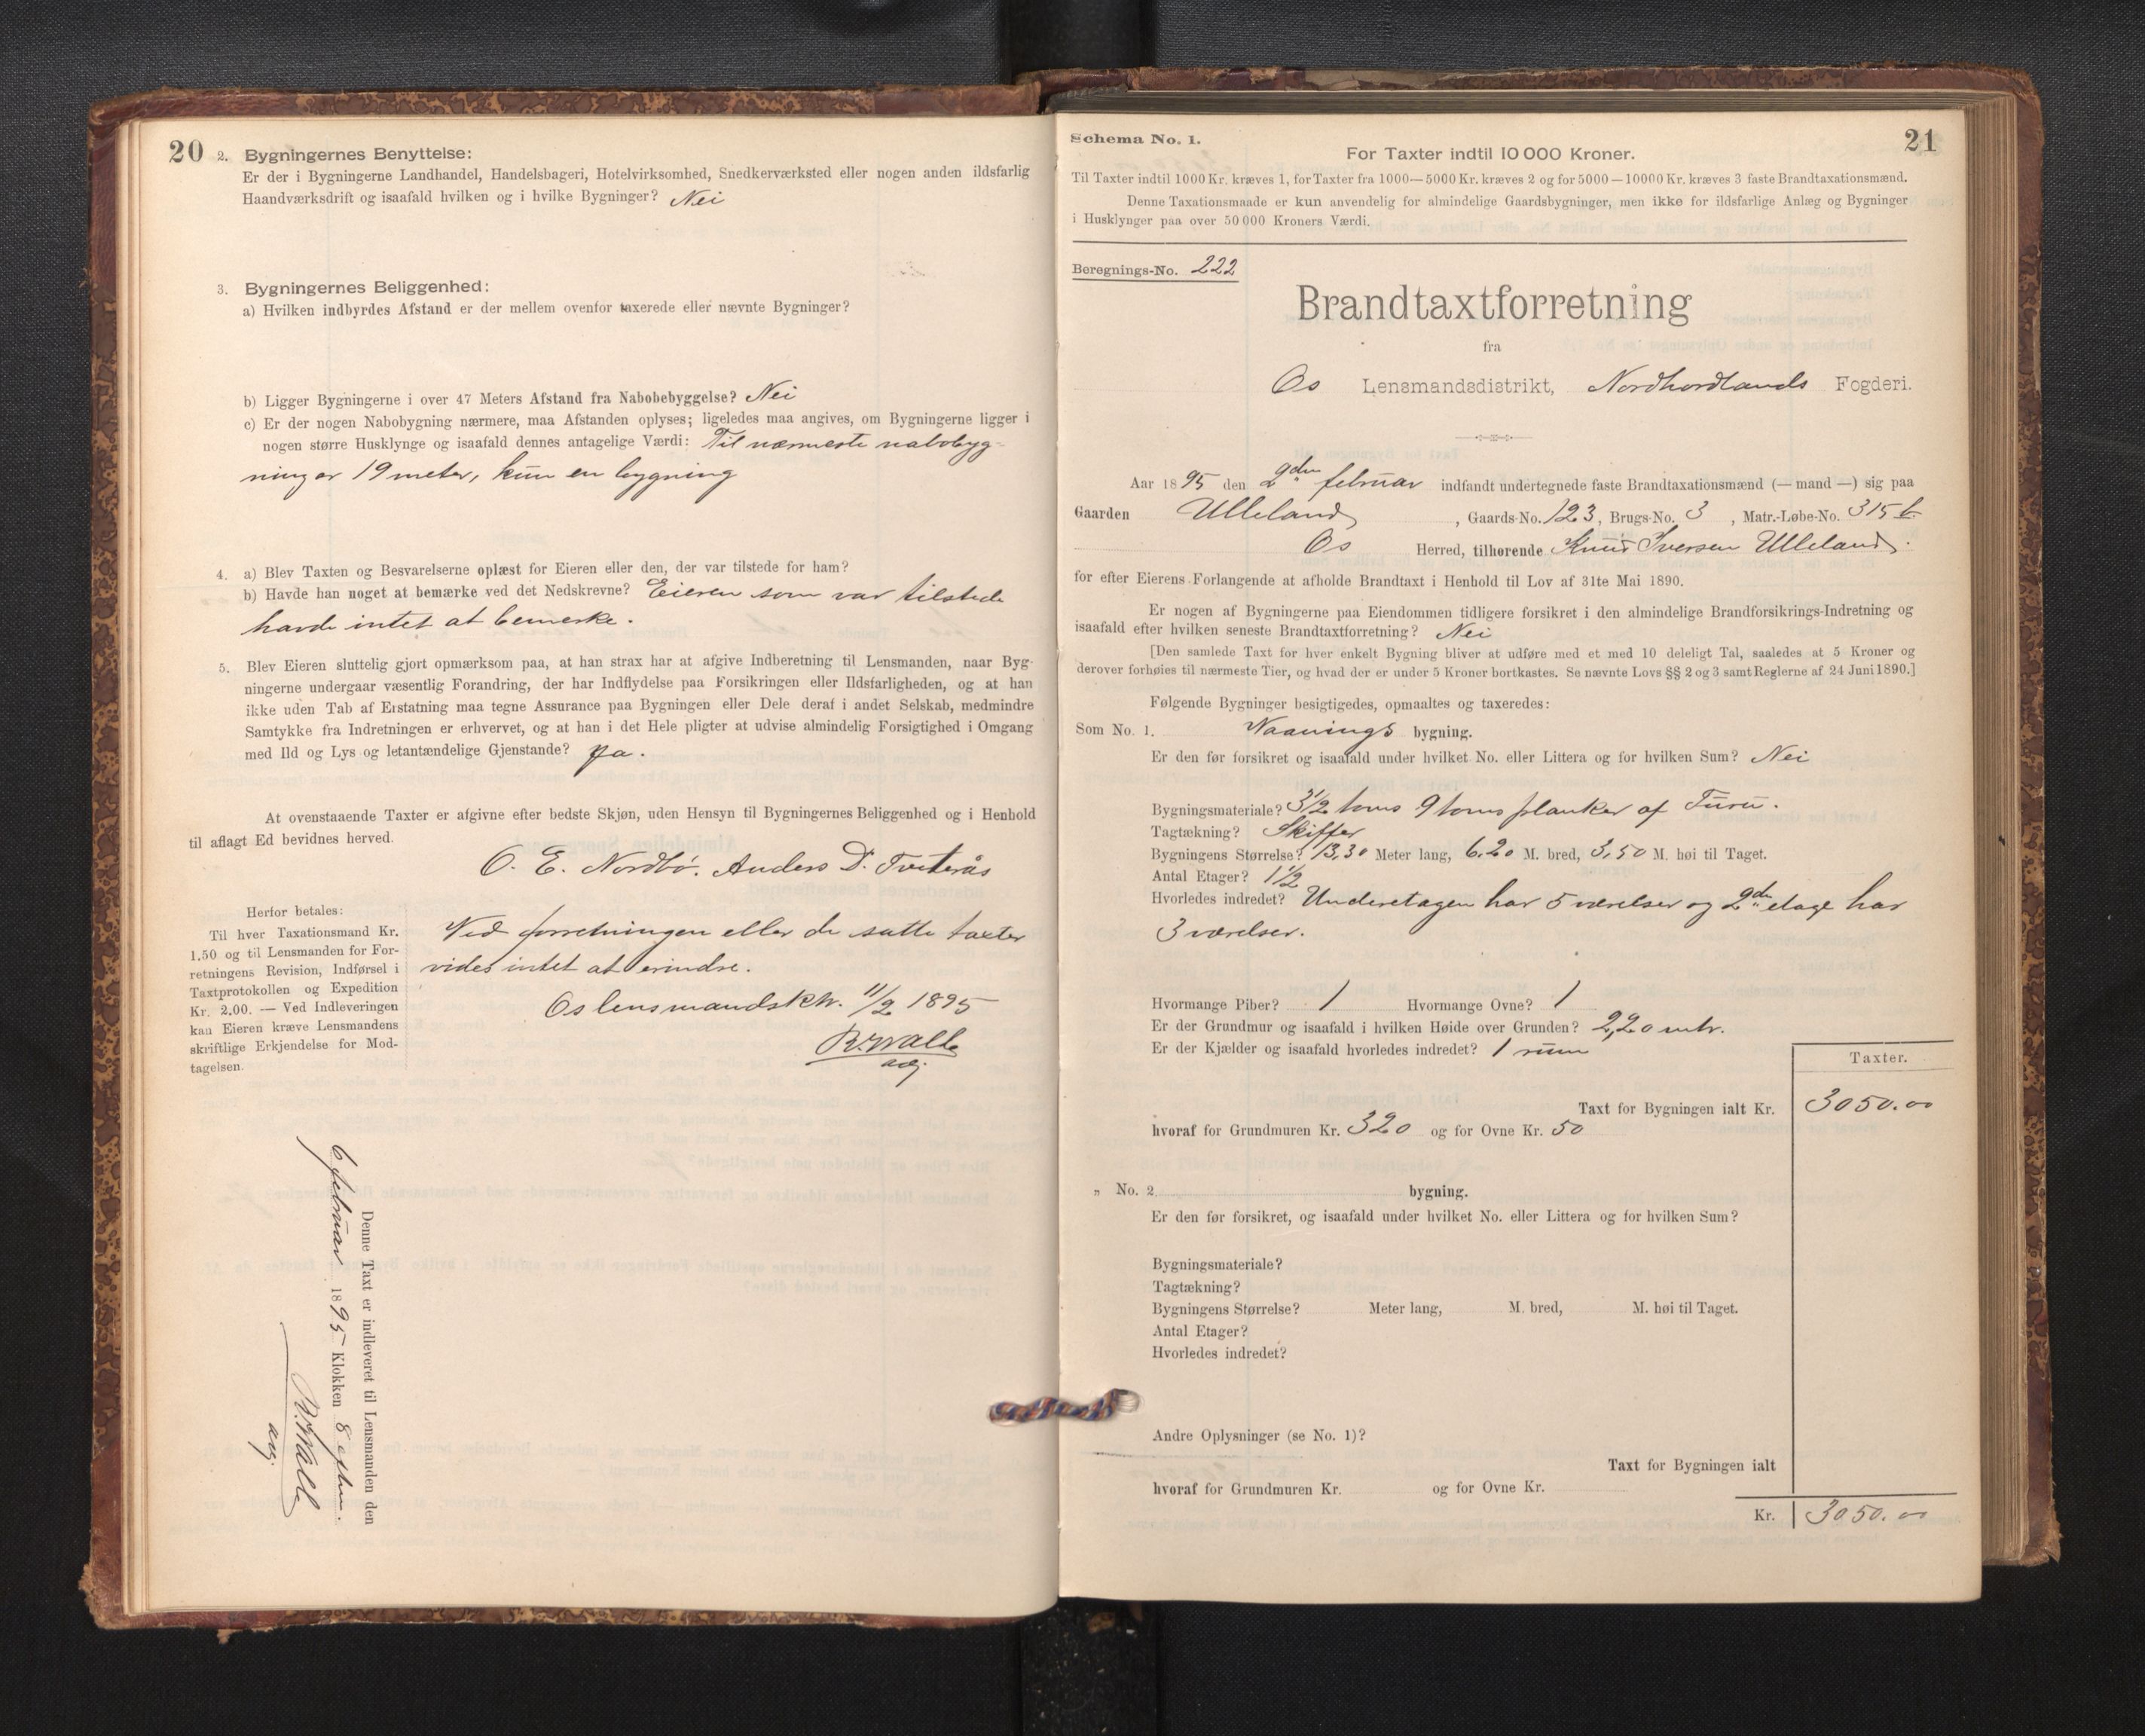 20
2. Bygningernes Benyttelse:
Er der i Bygningerne Landhandel, Handelsbageri, Hotelvirksomhed, Snedkerværksted eller nogen anden ildsfarlig
Haandværksdrift og isaafald hvilken og i hvilke Bygninger? Nei
3. Bygningernes Beliggenhed:
a) Hvilken indbyrdes Afstand er der mellem ovenfor taxerede eller nævnte Bygninger?
b) Ligger Bygningerne i over 47 Meters Afstand fra Nabobebyggelse? Nei
c) Er der nogen Nabobygning nærmere, maa Afstanden oplyses; ligeledes maa angives, om Bygningerne ligger i
nogen større Husklynge og isaafald dennes antagelige Værdi: Til nærmeste nabobyg-
ning er 19 meter, kun en bygning
4. a) Blev Taxten og Besvarelserne oplæst for Eieren eller den, der var tilstede for ham?
b) Havde han noget at bemærke ved det Nedskrevne? Eieren som var tilstede
havde intet at bemerke.
5. Blev Eieren sluttelig gjort opmærksom paa, at han strax har at afgive Indberetning til Lensmanden, naar Byg-
ningerne undergaar væsentlig Forandring, der har Indflydelse paa Forsikringen eller Ildsfarligheden, og at han
ikke uden Tab af Erstatning maa tegne Assurance paa Bygningen eller Dele deraf i andet Selskab, medmindre
Samtykke fra Indretningen er erhvervet, og at han i det Hele pligter at udvise almindelig Forsigtighed i Omgang
med Ild og Lys og letantændelige Gjenstande? Ja.
At ovenstaaende Taxter er afgivne efter bedste Skjøn, uden Hensyn til Bygningernes Beliggenhed og i Henhold
til aflagt Ed bevidnes herved.
O. E. Nordbø. Anders D. Tveterås
Herfor betales:
Til hver Taxationsmand Kr.
1.50 og til Lensmanden for For-
retningens Revision, Indførsel i
Taxtprotokollen og Expedition
Kr. 2.00. — Ved Indleveringen
kan Eieren kræve Lensmandens
skriftlige Erkjendelse for Mod-
tagelsen.
Ved forretningen eller de satte taxter
vides intet at erindre.
Os lensmandsktr. 11/2 1895
Denne Taxt er indleveret til Lensmanden den
6 februar 1895 Klokken 8 efterm.
21
Schema No. 1.
For Taxter indtil 10 000 Kroner.
Til Taxter indtil 1000 Kr. kræves 1, for Taxter fra 1000—5000 Kr. kræves 2 og for 5000—10000 Kr. kræves 3 faste Brandtaxationsmænd.
Denne Taxationsmaade er kun anvendelig for almindelige Gaardsbygninger, men ikke for ildsfarlige Anlæg og Bygninger
i Husklynger paa over 50 000 Kroners Værdi.
Beregnings-No. 222
Brandtaxtforretning
fra
Os Lensmandsdistrikt, Nordhordlands Fogderi.
Aar 1895 den 2den februar indfandt undertegnede faste Brandtaxationsmænd (— mand —) sig paa
Gaarden Ulleland, Gaards-No. 123, Brugs-No. 3, Matr.-Løbe-No. 315 b
Os Herred, tilhørende Knud Iversen Ulleland.
for efter Eierens Forlangende at afholde Brandtaxt i Henhold til Lov af 31te Mai 1890.
Er nogen af Bygningerne paa Eiendommen tidligere forsikret i den almindelige Brandforsikrings-Indretning og
isaafald efter hvilken seneste Brandtaxtforretning? Nei
[Den samlede Taxt for hver enkelt Bygning bliver at udføre med et med 10 deleligt Tal, saaledes at 5 Kroner og
derover forhøies til nærmeste Tier, og hvad der er under 5 Kroner bortkastes. Se nævnte Lovs §§ 2 og 3 samt Reglerne af 24 Juni 1890.]
Følgende Bygninger besigtigedes, opmaaltes og taxeredes:
Som No. 1. Vaanings bygning.
Er den før forsikret og isaafald under hvilket No. eller Littera og for hvilken Sum? Nei
Bygningsmateriale? 3 1/2 toms 9 toms planker af Furu.
Tagtækning? Skiffer
Bygningens Størrelse? 13,30 Meter lang, 6,20 M. bred, 3,50 M. høi til Taget.
Antal Etager? 1 1/2
Hvorledes indredet? Underetagen har 5 værelser og 2den etage har
3 værelser.
Hvormange Piber? 1 Hvormange Ovne? 1
Er der Grundmur og isaafald i hvilken Høide over Grunden? 2,20 mtr.
Er der Kjælder og isaafald hvorledes indredet? 1 rum
Taxter.
Taxt for Bygningen ialt Kr. 3050.00
hvoraf for Grundmuren Kr. 320 og for Ovne Kr. 50
„ No. 2. bygning.
Er den før forsikret, og isaafald under hvilket No. eller Littera og for hvilken Sum?
Bygningsmateriale?
Tagtækning?
Bygningens Størrelse? Meter lang, M. bred, M. høi til Taget.
Antal Etager?
Hvorledes indredet?
Andre Oplysninger (se No. 1)?
Taxt for Bygningen ialt
hvoraf for Grundmuren Kr. og for Ovne Kr.
Kr. 3050.00